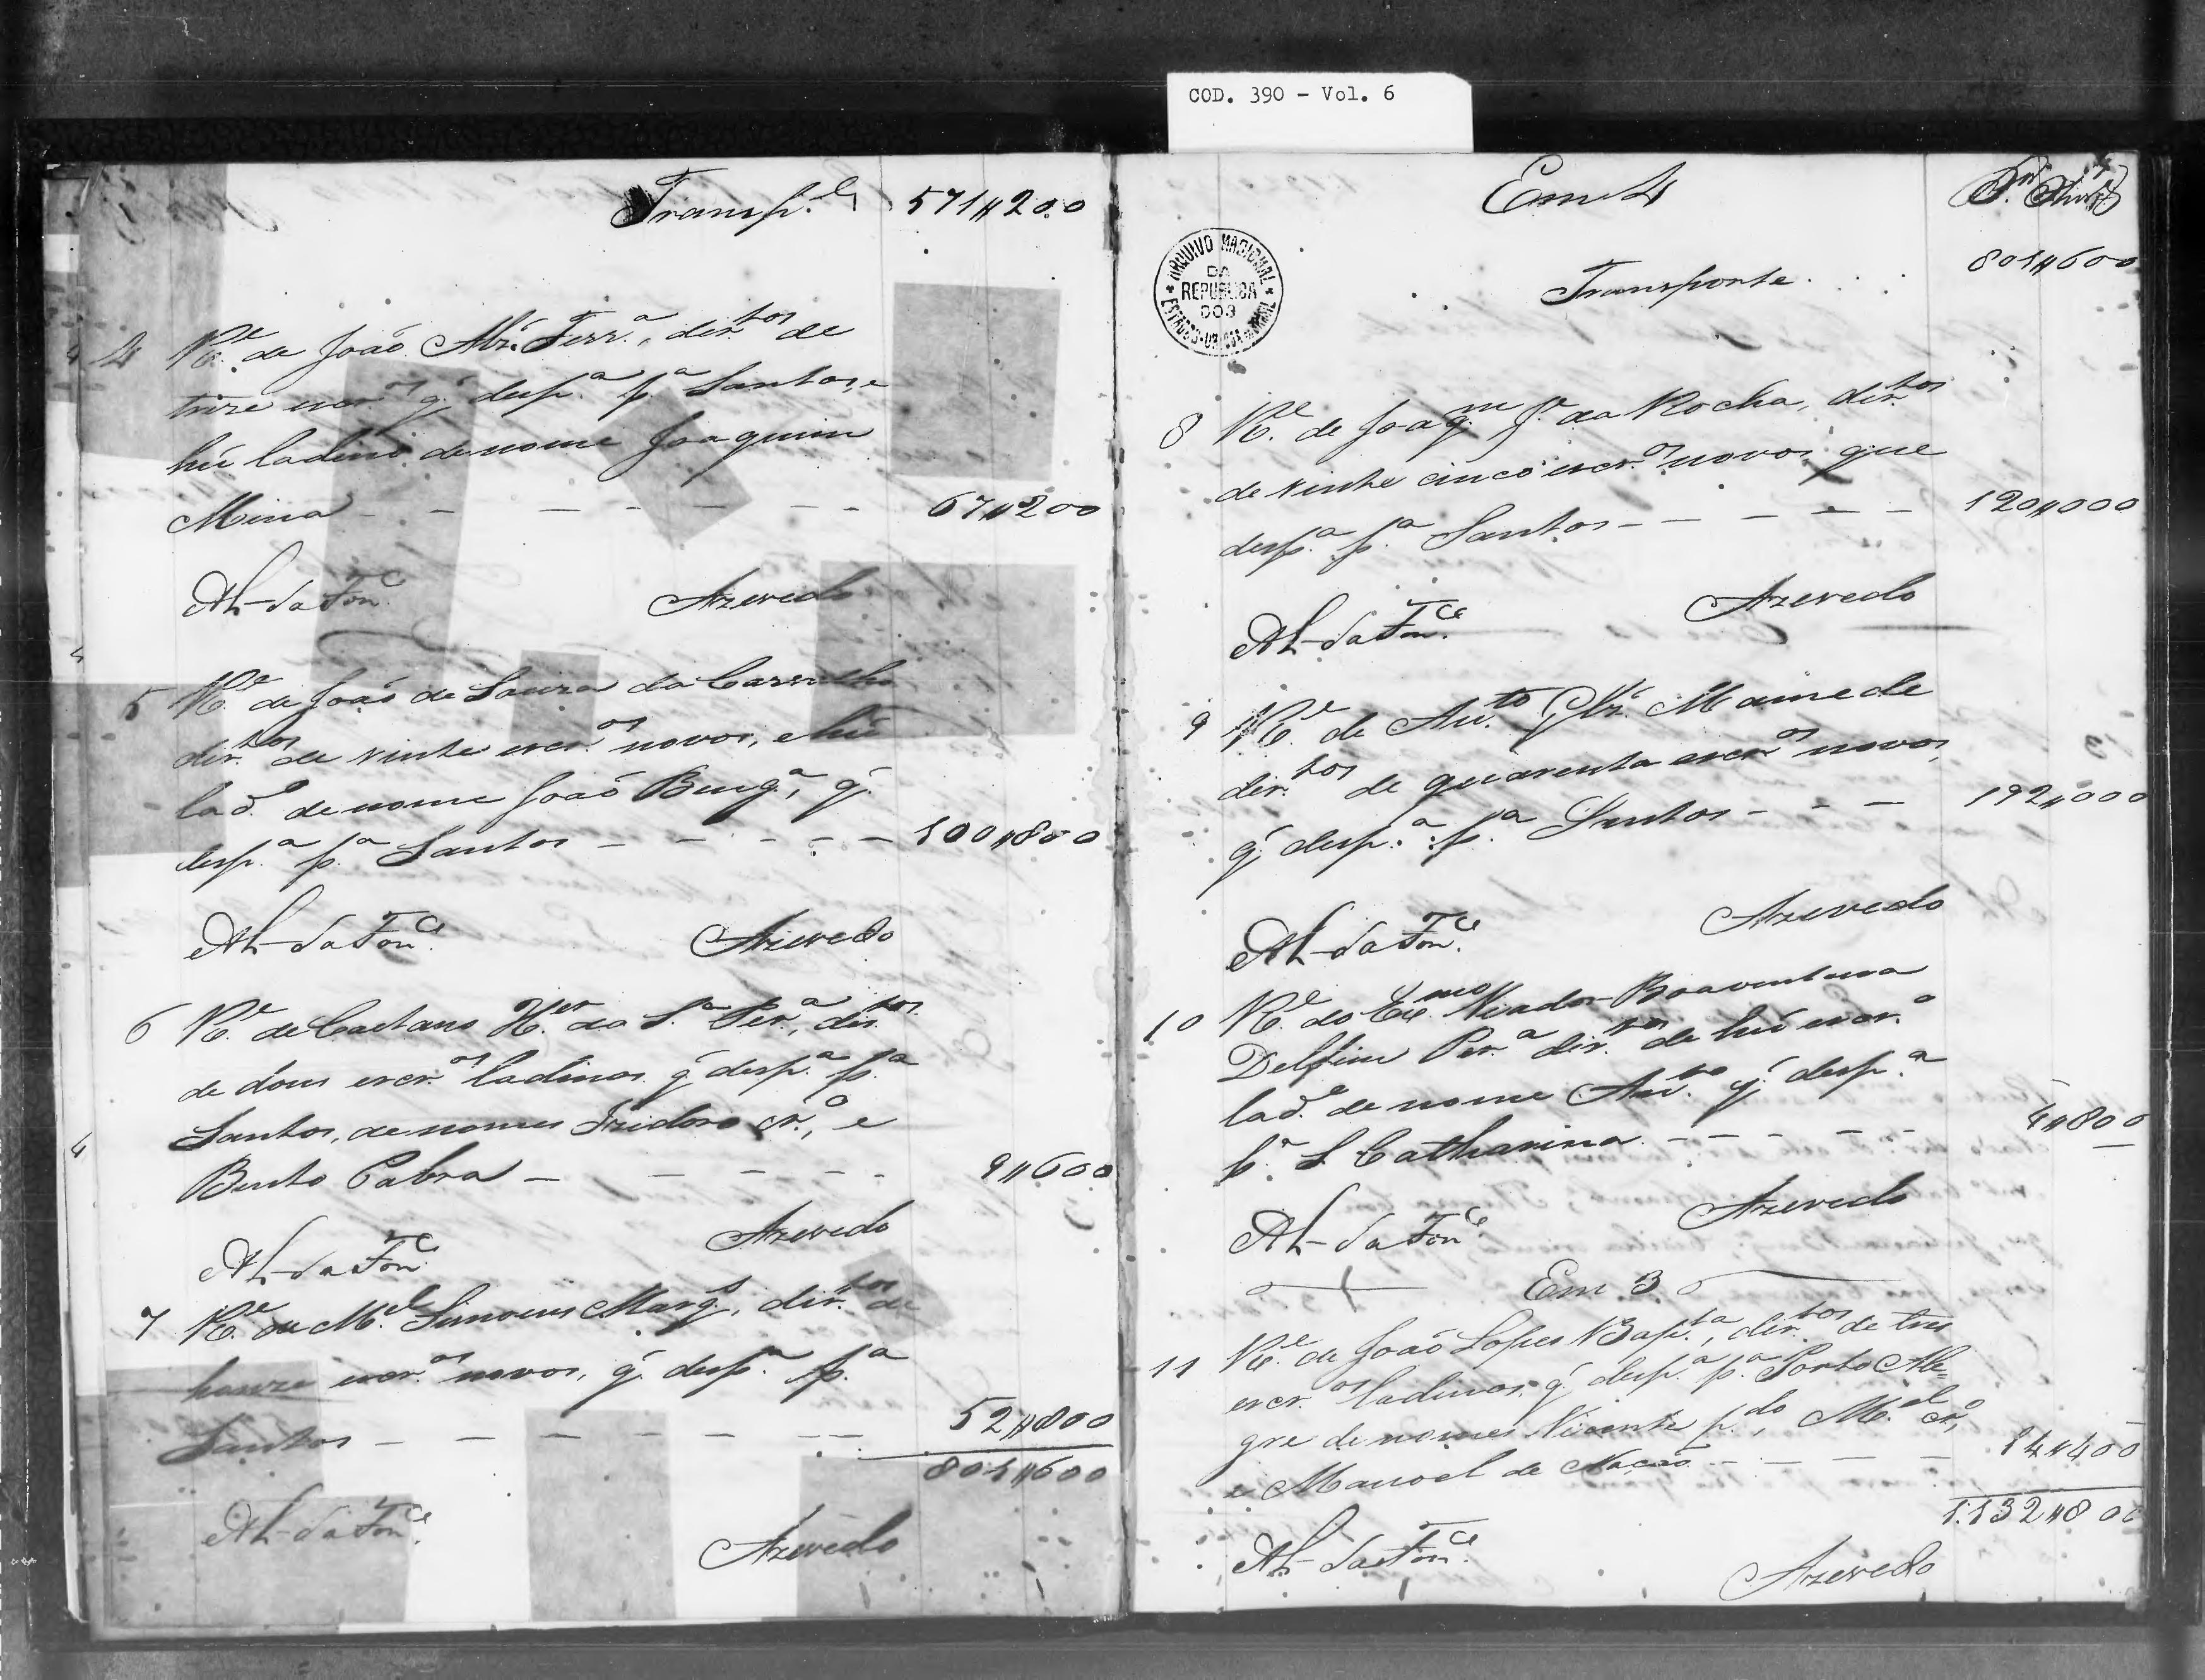 COD. 390 - Vol. 6
Transp.e 571$200
4 R.e de João Alz. Ferr.a, dir.tos de
treze escr.os q' desp.a p.a Santos, e
hũ ladino de nome Joaquim
Mina - - - - - - 67$200
Al-da Fon.ca Azevedo
5 R.e de João de Souza da Carvalho
dir.tos de vinte escr.os novos, e hũ
lad.o de nome João Beng.a, q'
desp.a p.a Santos - - - - - 100$800
Al-da Fon.ca Azevedo
6 R.e de Caetano da S.a Per.a, dir.tos
de dous escr.os ladinos q' desp.a p.a
Santos, de nomes Izidoro cr.o, e
Bento Cabra - - - - - 9$600
Al-da Fon.ca Azevedo
7 R.e de M.el Simoens Marq.s, dir.tos de
honze escr.os novos, q' desp.a p.a
Santos - - - - - - - 52$800
801$600
Al-da Fon.ca Azevedo
Em 4
ARQUIVO NACIONAL
DA
REPUBLICA
DOS
ESTADOS-UNIDOS DO BRASIL
Transporte 801$600
8 R.e de Joaq.m J.e da Rocha, dir.tos
de vinte cinco escr.os novos que
desp.a p.a Santos - - - - - 120$000
Al-da Fon.ca Azevedo
9 R.e de Ant.o Glz. Mamede
dir.tos de quarenta escr.os novos,
q' desp.a p.a Santos - - - 192$000
Al-da Fon.ca Azevedo
10 R.e do Ex.mo Boaventura
Delfim Per.a dir.tos de hũ escr.o
lad.o de nome Ant.o q' desp.a
p.a S. Catharina - - - - - 4$800
Al-da Fon.ca Azevedo
Em 3
11 R.e de João Lopes Bap.ta, dir.tos de tres
escr.os ladinos, q' desp.a p.a Porto Ale=
gre de nomes Vicente p.do, M.el cr.o,
e Manoel de Nação - - - - 14$400
1.132$800
Al-da Fon.ca Azevedo